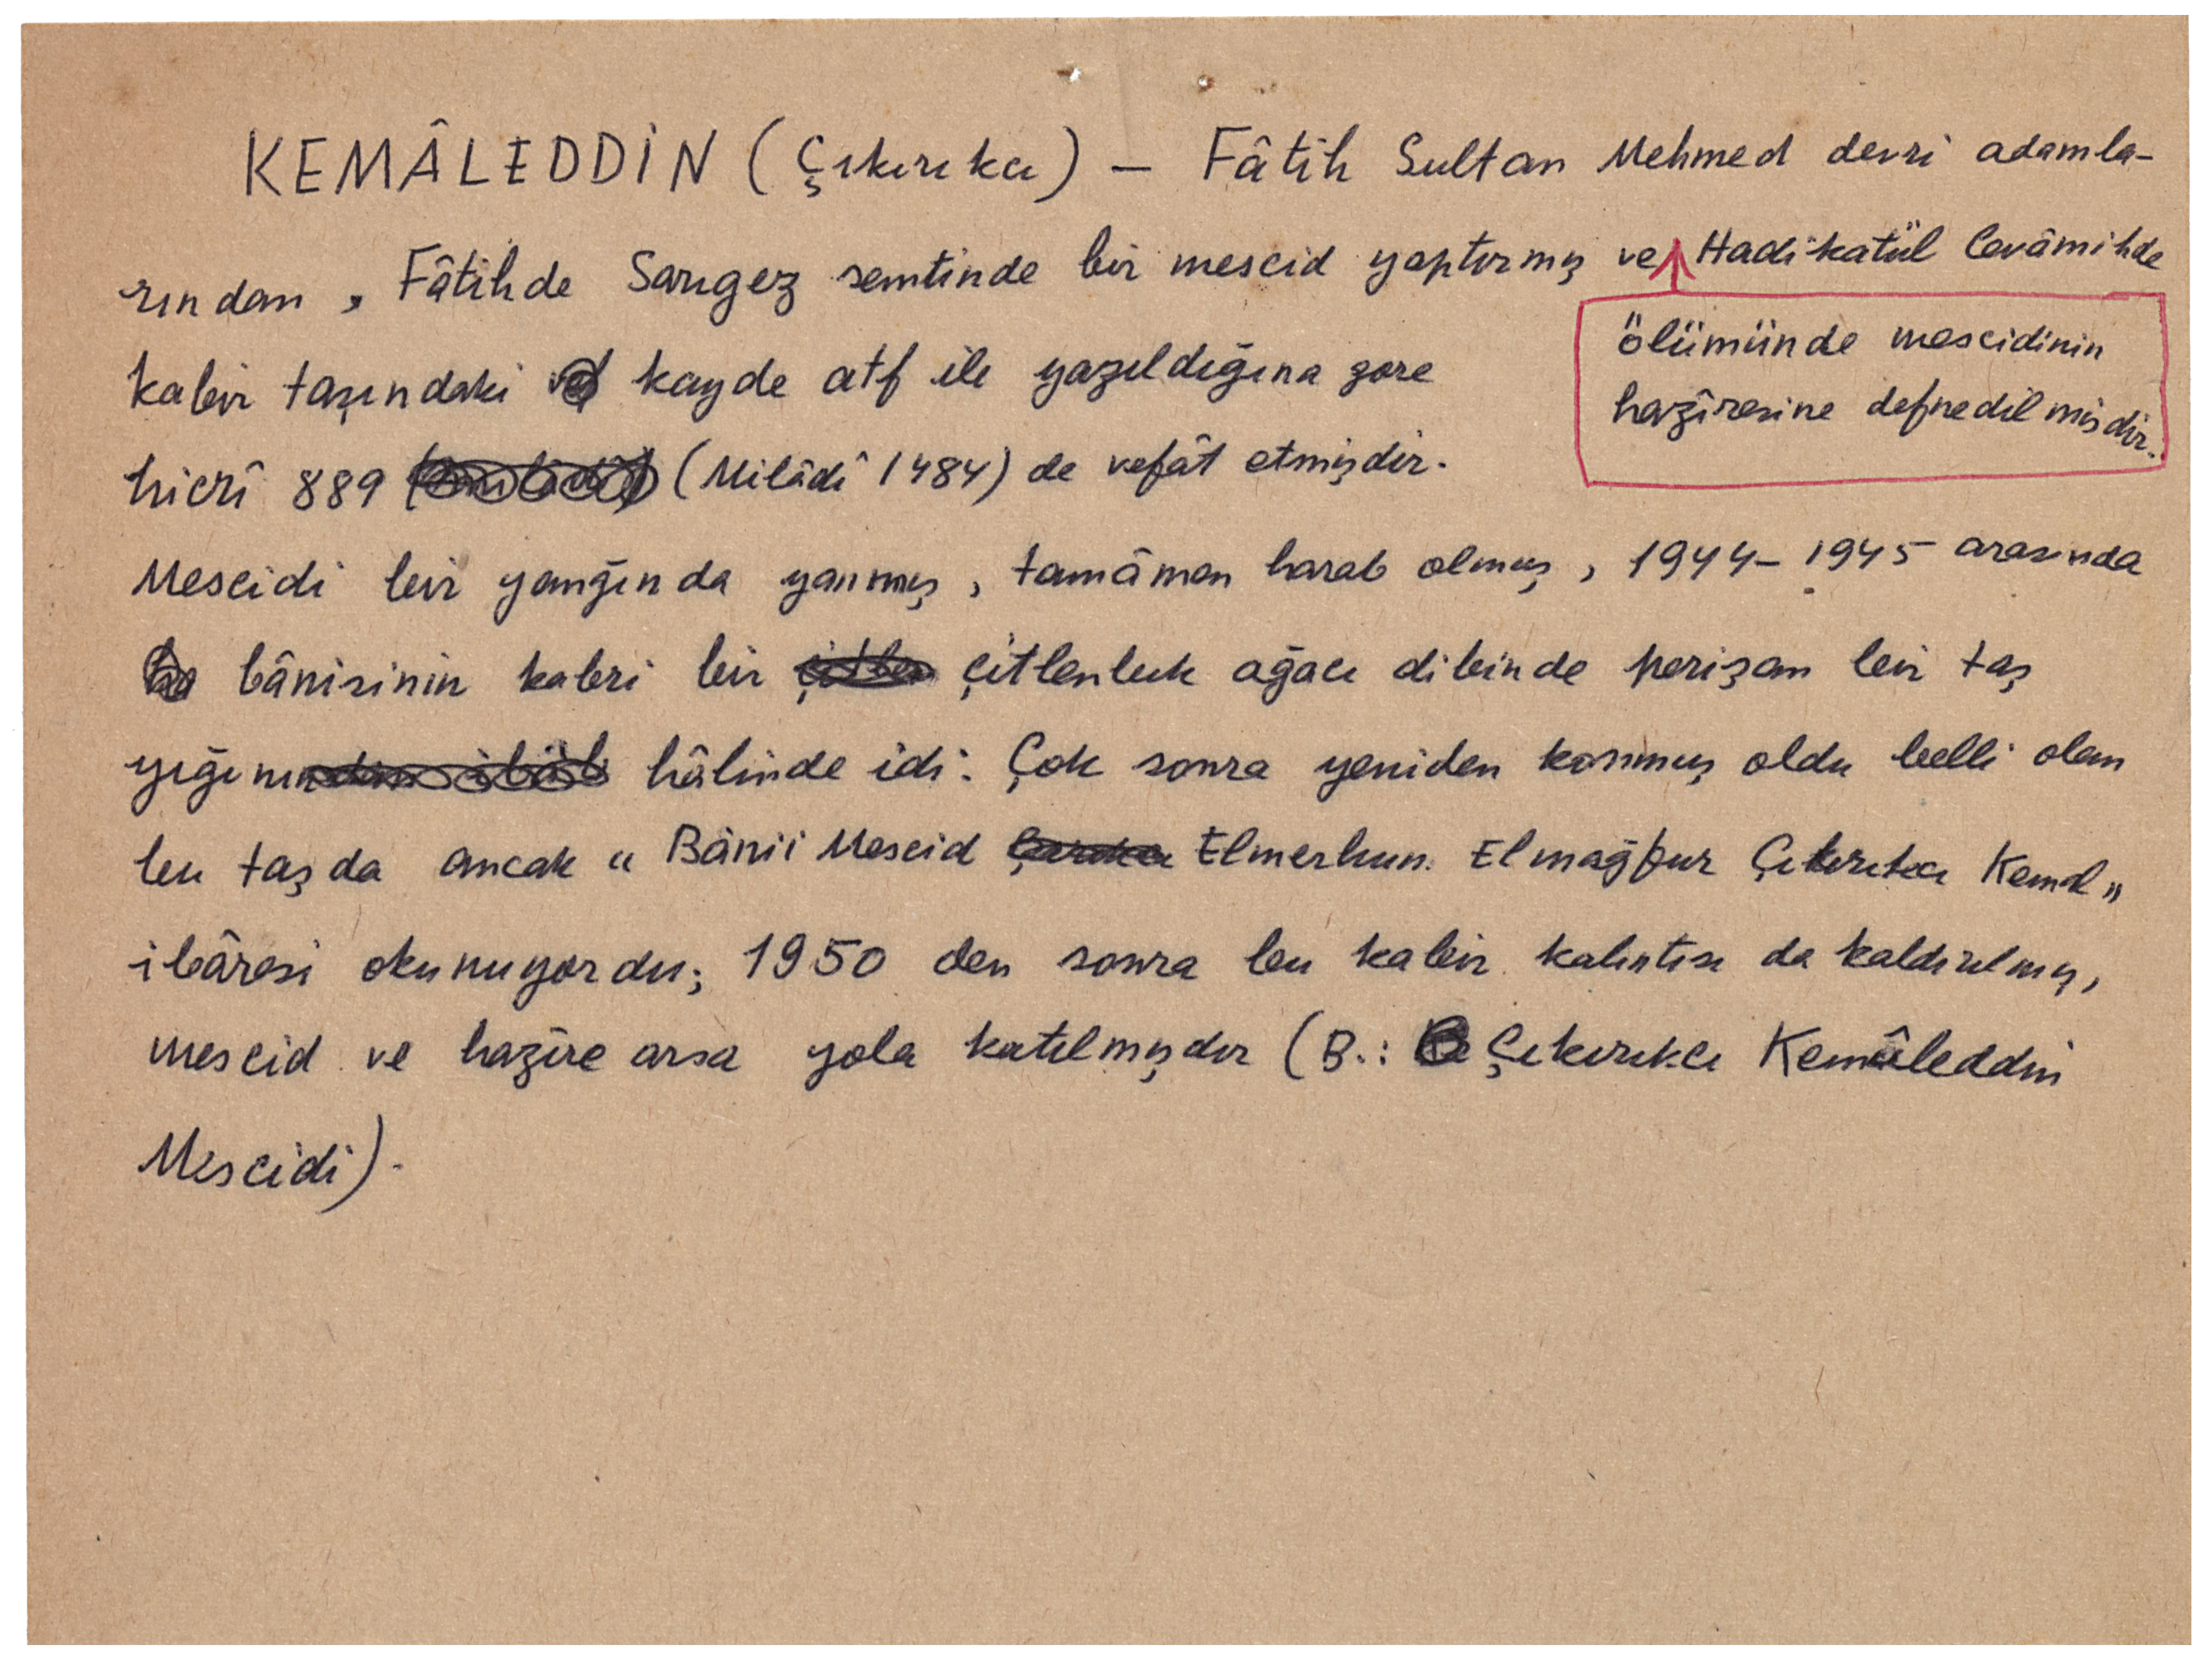 KEMÂLEDDİN (Çıkırıkcı) — Fâtih Sultan Mehmed devri adamla-
rından, Fâtihde Sarıgez semtinde bir mescid yaptırmış ve Hadikatül Cevâmihde
ölümünde mescidinin
hazîresine defnedilmişdir.
kabir taşındaki kayde atf ile yazıldığına göre
hicrî 889 (Milâdî 1484) de vefât etmişdir.
Mescidi bir yangında yanmış, tamâmen harab olmuş, 1944-1945 arasında
bânisinin kabri bir çitlenbik ağacı dibinde perişan bir taş
yığını hâlinde idi. Çok sonra yeniden konmuş oldu belli olan
bu taşda ancak "Bânii Mescid Elmerhum Elmağfur Çıkırıkcı Kemal"
ibâresi okunuyordu; 1950 den sonra bu kabir kalıntısı da kaldırılmış,
mescid ve hazîre arsa yola katılmışdır (B.: Çıkırıkcı Kemâleddin
Mescidi).